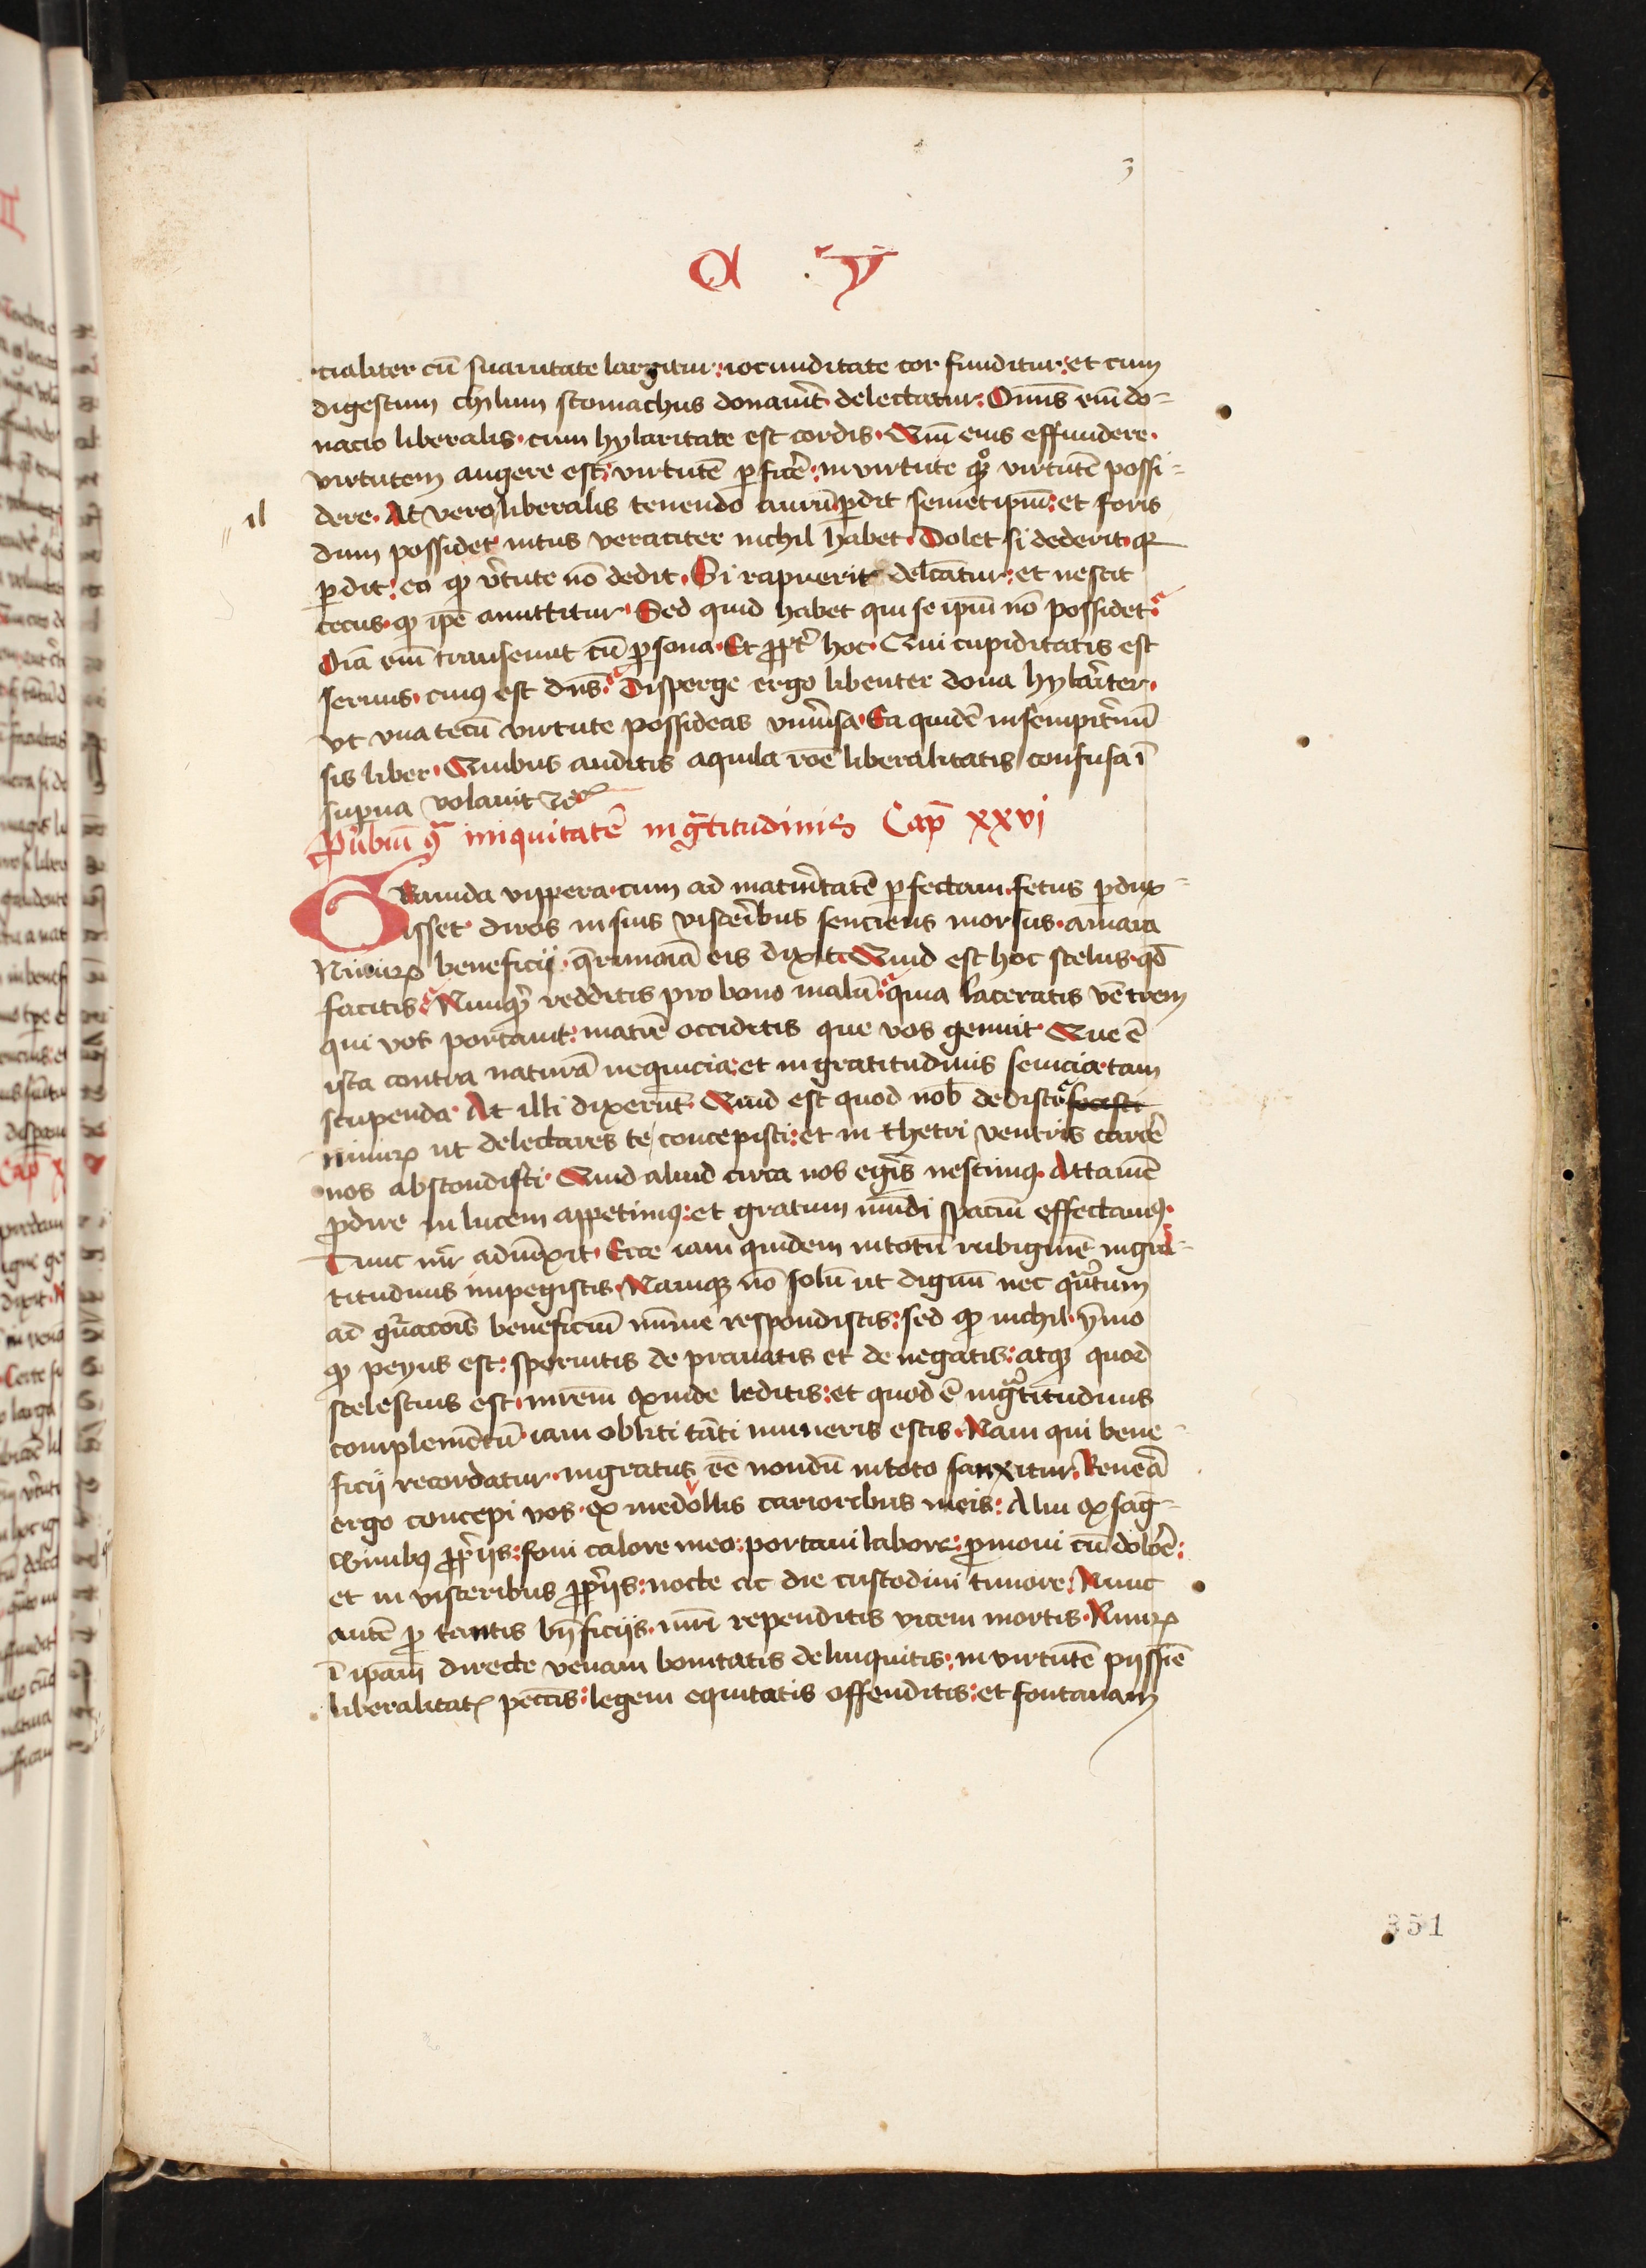 3
a v
cialiter cū suauitate largitur: iocunditate cor funditur: et cum
digestum chilum stomachus donauit̄ delectatur: Omīs em̄ do=
nacio liberalis cum hylaritate est cordis. Qm̄ eius effundere.
virtutem augere est: virtutē ꝑficē: in virtute qͦꝫ virtutē possi=
dere. At vero liberalis tenendo aurū ꝑdit semetipm̄: et foris
il
dum possidet intus veraciter nichil habet. Dolet si dederit qꝛ
ꝑdit: eo ꝙ v̄tute nō dedit. Si rapuerit delcātur: et nescit
cecus ꝙ ipē amittitur. Sed quid habet qui se ipm̄ nō possidet
Oīa em̄ transeunt cū ꝑsona. Et ꝓpt̄ hoc. Qui cupiditatis est
seruus. cuiꝰ est dn̄s. Disperge ergo libenter dona hylar̄iter.
vt vna tecū virtute possideas vniu̓sa. Ea quidē in sempit̓nū
sis liber. Quibus auditis aquila rōe liberalitatis confusa ī
supna volauit
iniquitatē ingᵃtitudinis Cap̄ xxvi
Grauida vippera cum ad matur̄itatē ꝑfectam. fetus ꝑdux=
isset diros in suis viscer̄ibus senciens morsus. amara
Nimirꝫ beneficij. q̄rimoīā eis dixit. Quid est hoc scelus qd̄
facitis Nunqͥd redditis pro bono malū: quia laceratis vētrem
qui vos portauit: matrē occiditis que vos genuit. Que ē
ista contra naturā nequicia: et ingratitudinis seuicia. tam
stupenda. At illi dixerūt. Quid est quod nob̄ dedisti
nimirꝫ ut delectares te concepisti: et in thetri ventris carcē
nos abscondisti. Quid aliud circa nos egis̄ nescimꝰ. Attamē
ꝓdire in lucem appetimꝰ: et gratum mūdi spaciū effectamꝰ.
Tunc mr̄ aduēxit. Ecce iam quidem in totū rubiginē ingra=
titudinis impegistis. Namqꝫ nō solū ut dignū nec qͣntum
ad gn̄acōis beneficiū mīme respondistis: sed ꝙ nichil ymo
ꝙ peyus est: spernitis de prauatis et de negatis: atqꝫ quod
scelestius est. mr̄em exinde leditis: et quod ē ingᵃtitudinis
complemētū iam obliti tāti muneris estis. Nam qui bene=
ficij recordatur. ingratus eē nondū in toto sanxitur. Reuera
ergo concepi vos ex medollis carioribus meis. Alui ex saḡ=
winibꝰ ꝓpriis: foui calore meo: portaui labore: ꝑmoui cū dolōe:
et in visceribus ꝓpriis: nocte ac die custodiui timore. Nunc
autē ꝓ tantis bn̄ficijs. mr̄i rependitis vicem mortis. Nimirꝫ
ī ipam̄ directe venam bonitatis delinquitis: in virtutē pijssiē
liberalitatꝫ peccīs: legem equitatis offenditis: et fontanam
351